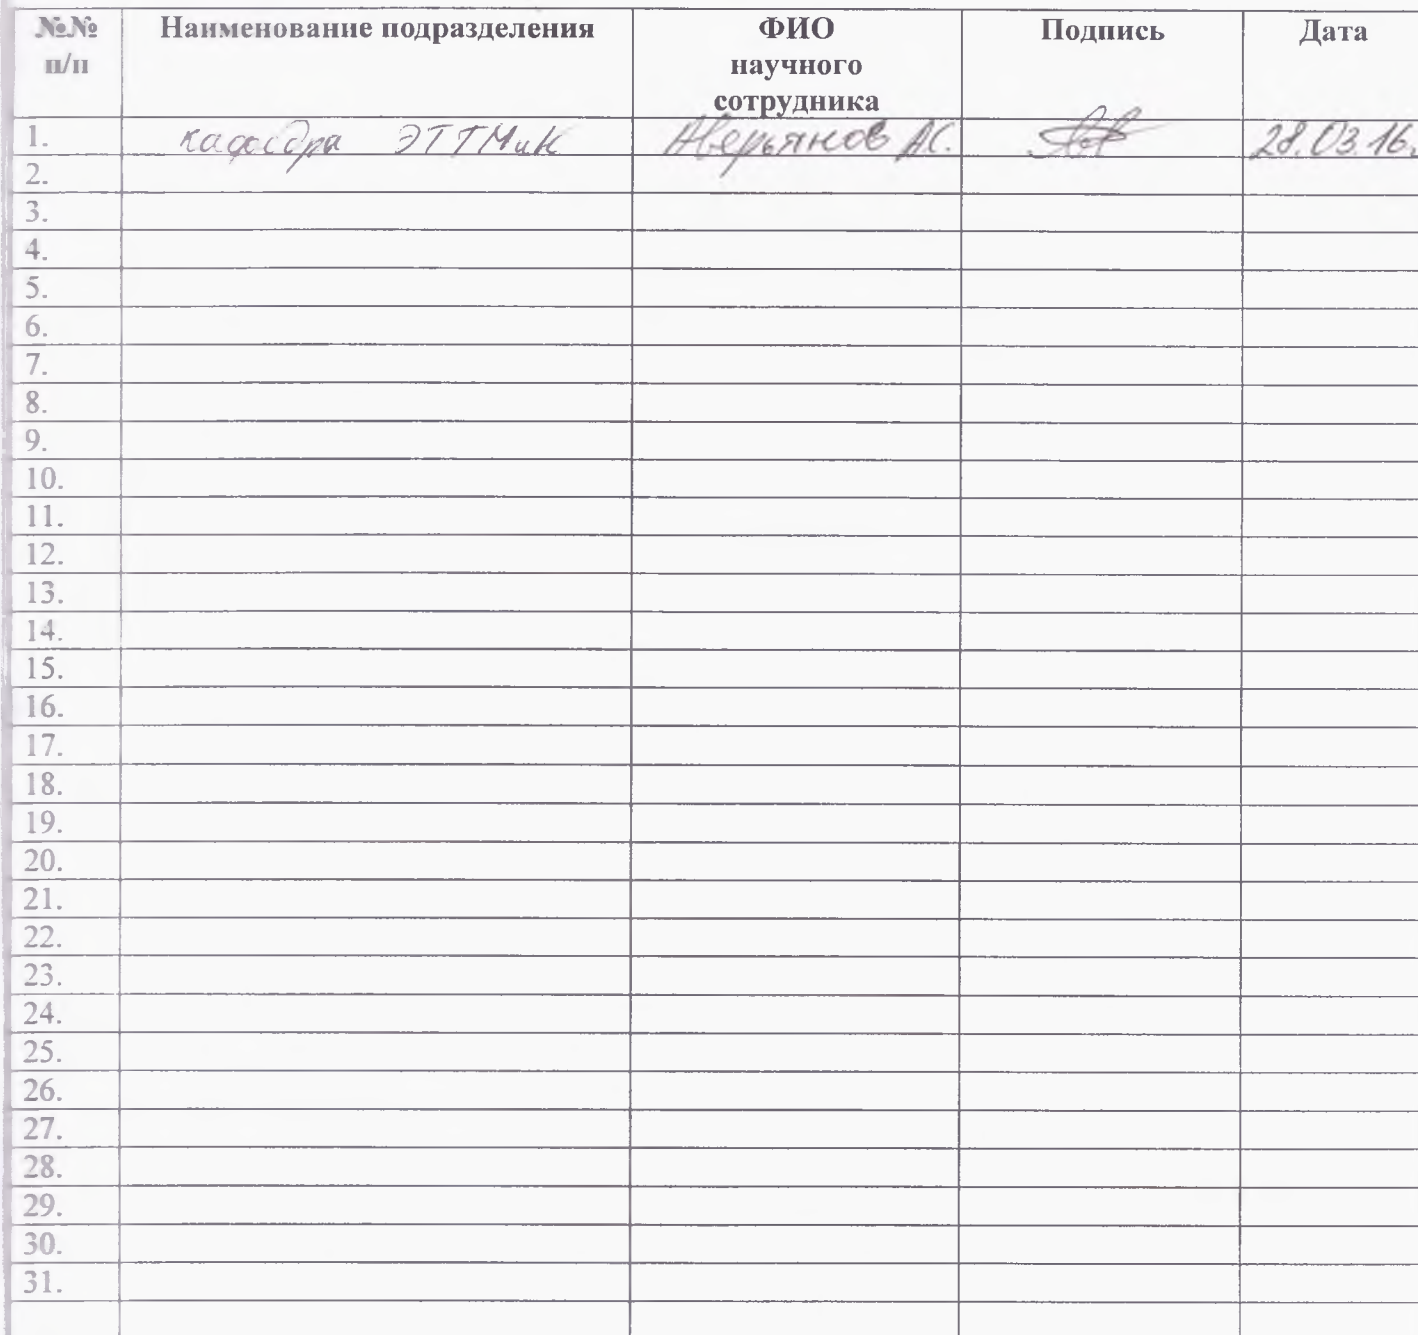 №№ Наименование подразделения ФИО Подпись Дата
п/п научного
сотрудника
1. кафедра ЭТТМиК Аверьянов А.С. 28.03.16.
2.
3.
4.
5.
6.
7.
8.
9.
10.
11.
12.
13.
14.
15.
16.
17.
18.
19.
20.
21.
22.
23.
24.
25.
26.
27.
28.
29.
30.
31.